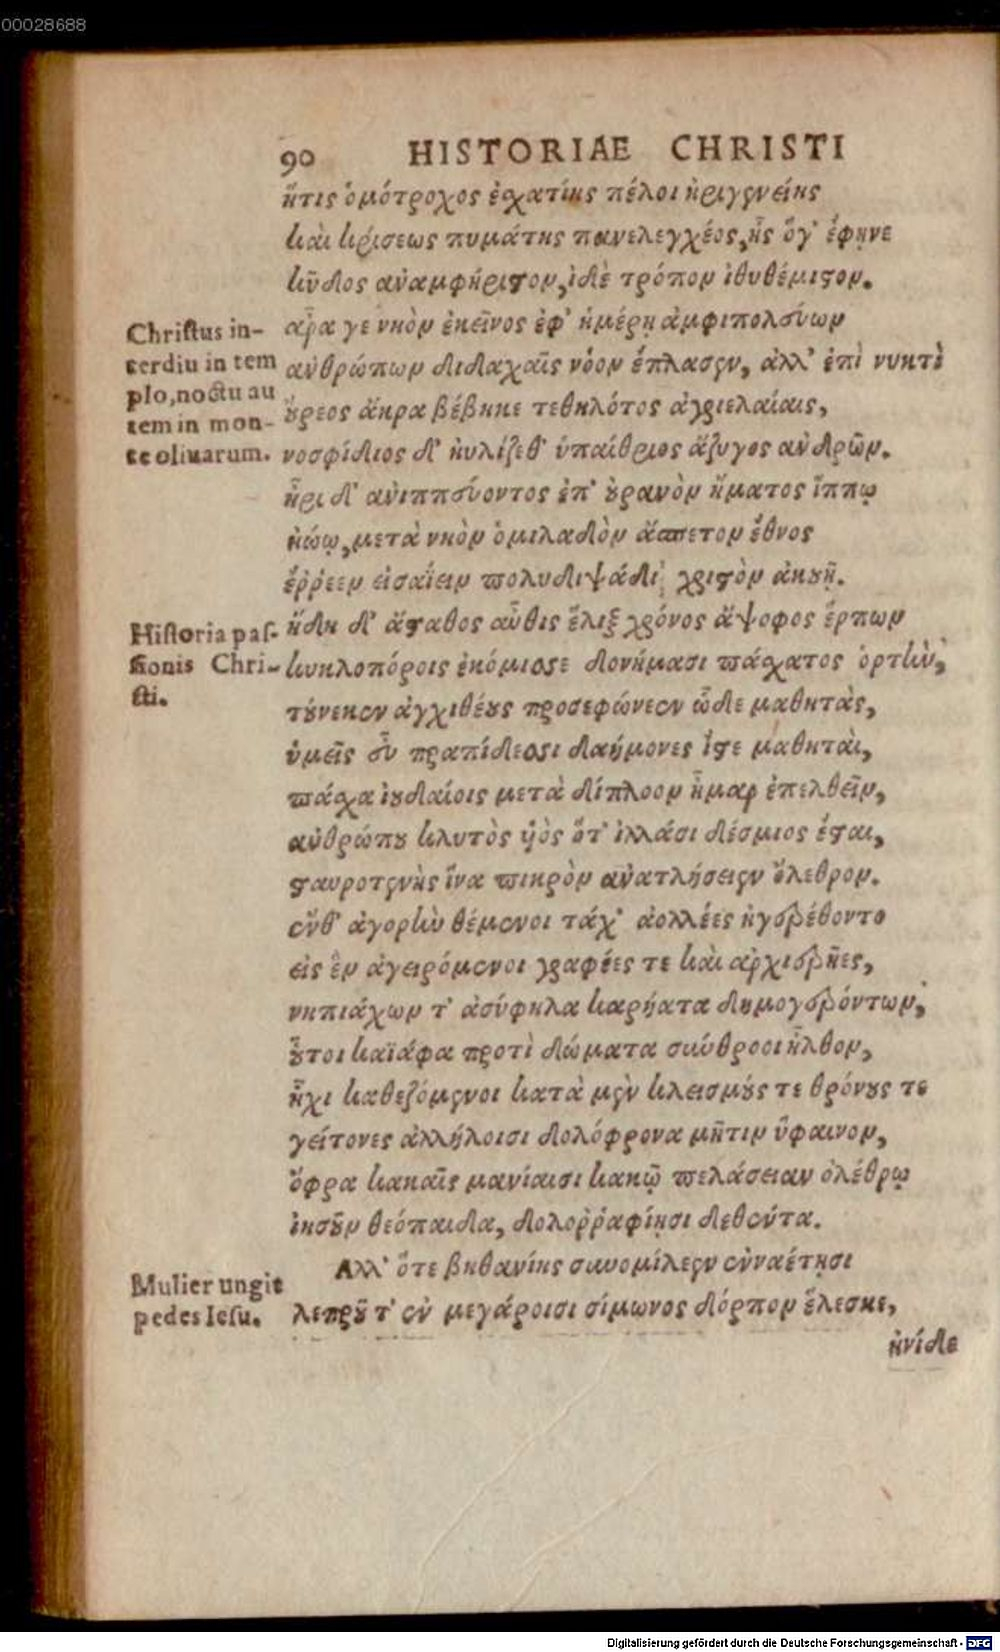 00028688
90 HISTORIAE CHRISTI
ἥτις ὁμότροχος ἐσχατίης πέλοι ἠριγενείης
καὶ κρίσεως πυμάτης πανελεγχέος, ἧς ὅγ᾽ ἔφηνε
κῦδος ἀναμφήριστον, ἰδὲ τρόπον ἰθυθέμιστον.
Christus in-
terdiu in tem
plo, noctu au
tem in mon-
te oliuarum.
ἆρα γε νηὸν ἐκεῖνος ἐφ᾽ ἡμέρῃ ἀμφιπολεύων
ἀνθρώπων διδαχαῖς νόον ἔπλασεν, ἀλλ᾽ ἐπὶ νυκτὶ
οὔρεος ἄκρα βέβηκε τεθηλότος ἀγριελαίαις,
νοσφίδιος δ᾽ ηὐλίζεθ᾽ ὑπαίθριος ἄζυγος ἀνδρῶν.
ἦρι δ᾽ ἀνιππεύοντος ἐπ᾽ οὐρανὸν ἤματος ἵππῳ
ἠώῳ, μετὰ νηὸν ὁμιλαδὸν ἄσπετον ἔθνος
ἔῤῥεεν εἰσαΐειν πολυδιψάδι χριστὸν ἀκουῇ.
Historia pas-
sionis Chri-
sti.
ἤδη δ᾽ ἄσταθος αὖθις ἕλιξ χρόνος ἄψοφος ἕρπων
κυκλοπόροις ἐκόμισσε δονήμασι πάσχατος ὁρτὴν,
τούνεκεν ἀγχιθέους προσεφώνεεν ὧδε μαθητὰς,
ὑμεῖς εὖ πραπίδεσσι δαήμονες ἴστε μαθηταὶ,
πάσχα ἰουδαίοις μετὰ δίπλοον ἦμαρ ἐπελθεῖν,
ἀνθρώπου κλυτὸς υἱὸς ὅτ᾽ ἰλλάσι δέσμιος ἔσται,
σταυροτενὴς ἵνα πικρὸν ἀνατλήσειεν ὄλεθρον.
ἔνθ᾽ ἀγορὴν θέμενοι τάχ᾽ ἀολλέες ἠγερέθοντο
εἰς ἓν ἀγειρόμενοι γραφέες τε καὶ ἀρχιερῆες,
νηπιάχων τ᾽ ἀσύφηλα καρήατα δημογερόντων,
οὗτοι καϊάφα προτὶ δώματα σύνθροοι ἦλθον,
ἧχι καθεζόμενοι κατὰ μὲν κλεισμούς τε θρόνους τε
γείτονες ἀλλήλοισι δολόφρονα μῆτιν ὕφαινον,
ὄφρα κακαῖς μανίαισι κακῷ πελάσειαν ὀλέθρῳ
ἰησοῦν θεόπαιδα, δολοῤῥαφίῃσι δεθέντα.
Mulier ungit
pedes Iesu.
Αλλ᾽ ὅτε βηθανίης συνομίλεεν ἐνναέτῃσι
λεπροῦ τ᾽ ἐν μεγάροισι σίμωνος δόρπον ἕλεσκε,
ἠνίδε
Digitalisierung gefördert durch die Deutsche Forschungsgemeinschaft - DFG